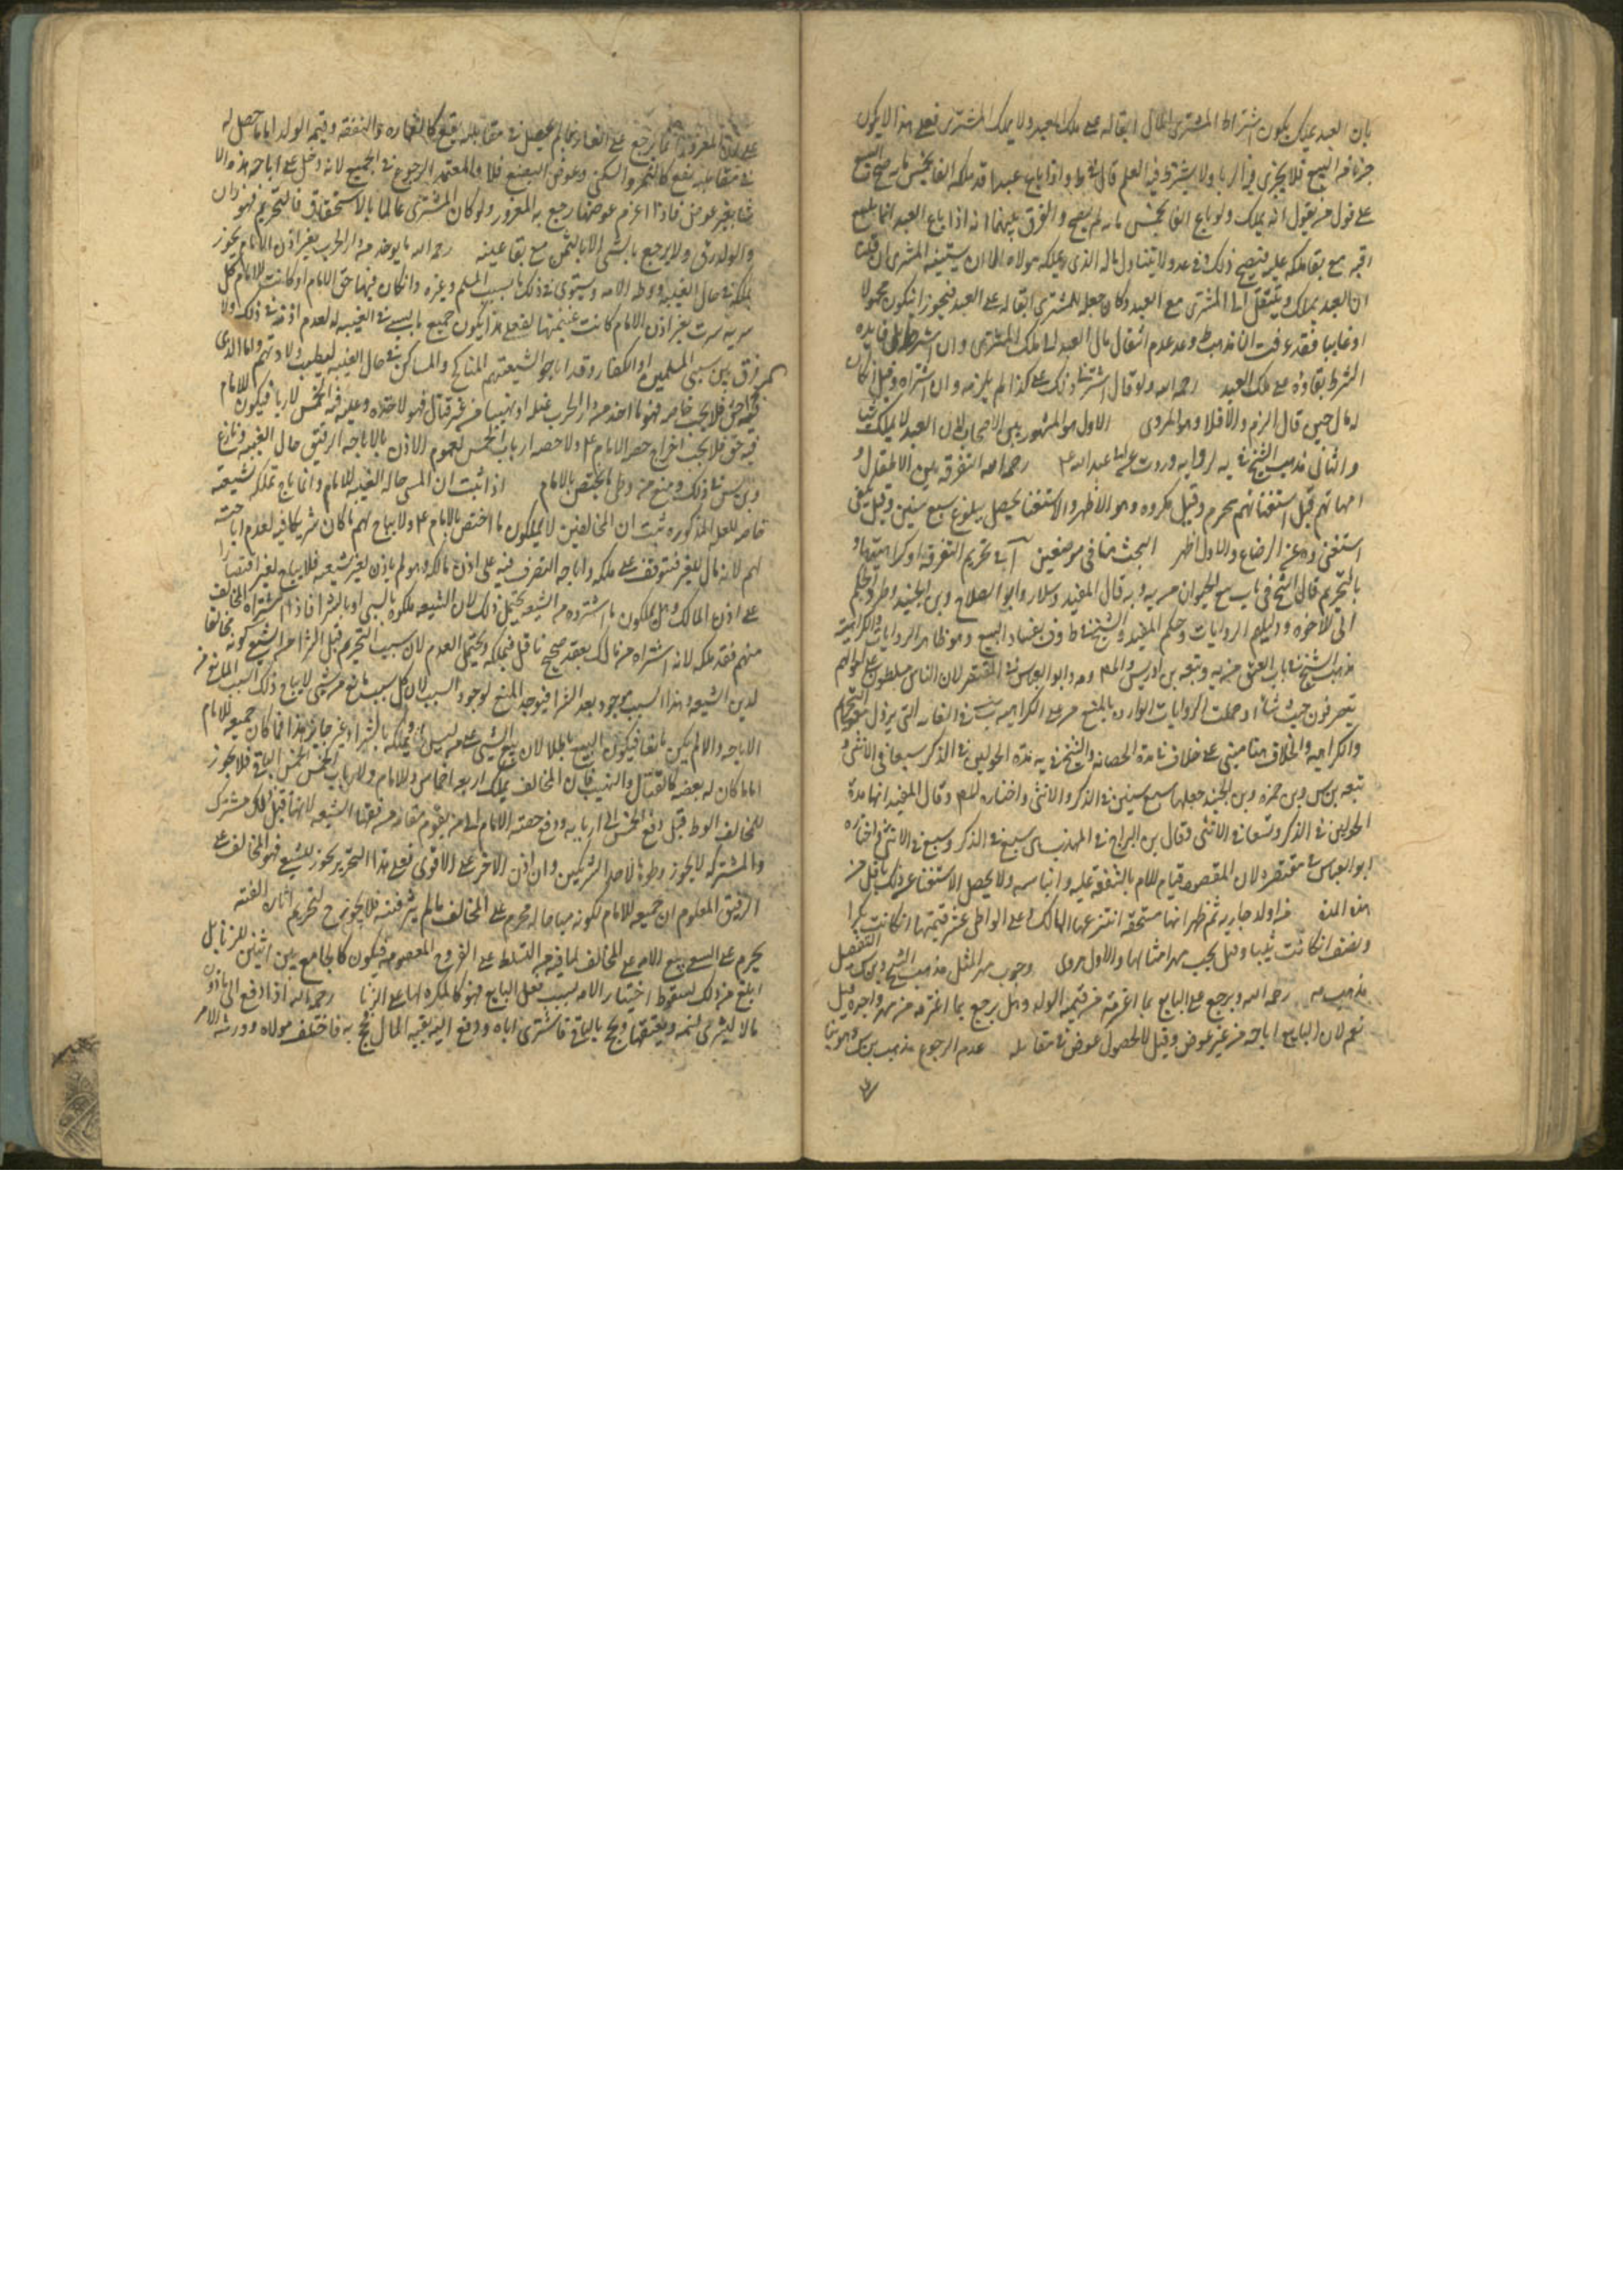 بان العبد يملك يكون اشتراط المشترى المال ابقاله على ملك العبد ولا يملك المشترى فعلى هذا لا يكون
جزءا من المبيع فلا يجرى فيه الربا ولا يشترط فيه العلم قال في ط واذا باع عبدا قد ملكه الفا بخمس مايه صح البيع
على قول من يقول انه يملك ولو باع الفا بخمس مايه لم يصح والفرق بينهما انه اذا باع العبد انما يبيع
رقبه مع بقا ملكه عليه فيصح ذلك وفى عدولا يتناول ماله الذى يملكه مولاه الا ان يستثنيه المشترى ان قلنا
ان العبد يملك وينتقل الى المشترى مع العبد وكان جعله للمشترى ابقاله على العبد فيجوز ان يكون مجهولا
او غايبا فقد عرفت ان مذهب ط وعد عدم انتقال مال العبد الى ملك المشترى وان اشترط بل فايده
الشرط بقاؤه على ملك العبد رحمه الله ولو قال اشترنى ولك على كذا لم يلزمه وان اشتراه وقيل ان كان
له مال حين قال الزم والا فلا وهو المروى الاول هو المشهور بين الاصحاب لان العبد لا يملك شيا
والثانى مذهب الشيخ في يه لروايه وردت عن ابى عبد الله ع رحمه الله التفرقه بين الاطفال و
امهاتهم قبل استغنائهم محرم وقيل مكروه وهو الاظهر والاستغنا يحصل ببلوغ سبع سنين وقيل يكفى
استغنى وه عن الرضاع والاول اظهر البحث هنا في موضعين آ في تحريم التفرقه او كراهيتها و
بالتحريم قال الشيخ في باب بيع الحيوان من يه وبه قال المفيد وسلار وابو الصلاح وبن الجنيد وطرد الحكم
الى الاخوه ودليلهم الروايات وحكم المفيد والشيخ في ط وف بفساد البيع وهو ظاهر الروايات والكراهية
مذهب الشيخ في باب العتق من يه وتبعه بن ادريس والمص وهو وابو العباس في المقتصر لان الناس مسلطون على اموالهم
يتصرفون حيث شاؤا وحملت الروايات الوارده بالمنع من على الكراهيه ب في الغايه التى يزول معها التحريم
والكراهيه والخلاف هنا مبنى على خلاف في مدة الحضانه والشيخ في يه مدة الحولين في الذكر وسبعا في الانثى و
تبعه بن س وبن حمزه وبن الجنيد جعلها سبع سنين في الذكر والانثى واختاره المص وقال المفيد انها مدة
الحولين في الذكر وتسعا في الانثى وقال بن البراج في المهذب سبع في الذكر وسبع في الانثى واختاره
ابو العباس في مقتصره لان المقصود قيام الام بالشفقه عليه وايناسه ولا يحصل الاستغنا عن ذلك باقل من
هذه المدة من اولد جاريه ثم ظهر انها مستحقه انتزعها المالك وعلى الواطى عشر قيمتها ان كانت بكرا
ونصف ان كانت ثيبا وقيل يجب مهر امثالها والاول مروى وجوب مهر المثل مذهب الشيخ وبن س والتفصيل
مذهب رحمه الله ويرجع على البايع بما اغرمه من قيمة الولد وهل يرجع بما اغترمه من مهر واجره قيل
نعم لان البايع اباحه من غير عوض وقيل لا لحصول عوض في مقابله عدم الرجوع مذهب بن س وهو بنا
على ان المغرور انما يرجع على الغار بما لم يحصل في مقابله نفع كالعماره والنفقه وقيمه الولد اما ما حصل له
في مقابله نفع كالثمر والسكنى وعوض البضع فلا والمعتمد الرجوع في الجميع لانه دخل على اباحه هذه الا
شيا بغير عوض فاذا اغرم عوضها رجع به المغرور ولو كان المشترى عالما بالاستحقاق فالتحريم فهو زان
والولد رق ولا يرجع بالشى الا بالثمن مع بقا عينه رحمه الله ما يوخذ من دار الحرب بغير اذن الامام يجوز
تملكه في حال الغيبه ووطى الامه ويستوى في ذلك ما يسبيه المسلم وغيره وان كان فيها حق الامام او كانت للامام كل
سريه سرت بغير اذن الامام كانت غنيمتها له فعلى هذا يكون جميع ما يسبى في الغيبه له لعدم اذنه في ذلك ولا
فرق بين سبى المسلمين والكفار وقد اباحوا لشيعتهم المناكح والمساكن في حال الغيبه ليطيب ولادتهم واما الذى
فيه حق فلا يجب خاصه فهو ما اخذ من دار الحرب غيله او نهيبا من غير قتال فهو لاخذه وعليه فيه الخمس لاربابه فيكون للامام
فيه حق فلا يجب اخراج حصه الامام ع ولا حصه ارباب الخمس لعموم الاذن بالاباحه الرقيق حال الغيبه ونازع
وبن س في ذلك ومنع من وطى ما يختص بالامام اذا ثبت ان المسبى حاله الغيبه للامام وانما باح تملكه لشيعته
خاصه للعله المذكوره ثبت ان المخالفين لا يملكون ما اختص بالامام ع ولا يباح لهم ما كان شريكا فيه لعدم اباحته
لهم لانه مال للغير فتوقف على ملكه واباحه التصرف فيه على اذن مالكه وهو لم ياذن لغير شيعته فلا يباح لغيرهم اقتصارا
على اذن المالك وهل يملكون ما اشتروه من الشيعه يحتمل ذلك لان الشيعه ملكوه بالسبى او بالشرا فاذا اشتراه المخالف
منهم فقد ملكه لانه اشتراه من مالك بعقد صحيح ناقل فيملكه ويحتمل العدم لان سبب التحريم قبل الشرا من الشيعى كونه مخالفا
لدين الشيعه وهذا السبب موجود بعد الشرا فيوجد المنع لوجود السبب لان كل سبب مانع من شى لا يباح ذلك السبب المانع من
الاباحه والا لم يكن مانعا فيكون البيع باطلا لان بيع الشى على من ليس له تملكه بالشرا غير جايز هذا فيما كان جميعه للامام
اما ما كان له بعضه كالقتال والنهيب فان المخالف يملك اربعه اخماس وللامام ولارباب الخمس الخمس الباقى فلا يجوز
للمخالف الوطى قبل دفع الخمس الى اربابه ودفع حصته الامام الى من يقوم مقامه من فقها الشيعه لانها قبل ذلك مشترك
والمشتركه لا يجوز وطوها لاحد الشريكين وان اذن الاخر على الاقوى فعلى هذا التحرير يجوز للشيعى قهر المخالف على
الرقيق المعلوم ان جميعه للامام لكونه مباحا له محرم على المخالف ما لم يثر فتنه فلا يجوز ح لتحريم اثاره الفتنه
يحرم على الشيعى بيع الامه على المخالف لما فيه من التسلط على الفروج المعصومه فيكون كالجامع بين اثنين للزنا بل
ابلغ من ذلك لسقوط اختيار الامه بسبب فعل البايع فهو كالمكره لها على الزنا رحمه الله اذا دفع الى ماذون
مالا ليشترى نسمه ويعتقها ويحج بالباقى فاشترى اباه ودفع اليه بقيه المال فحج به فاختلف مولاه وورثه الامر